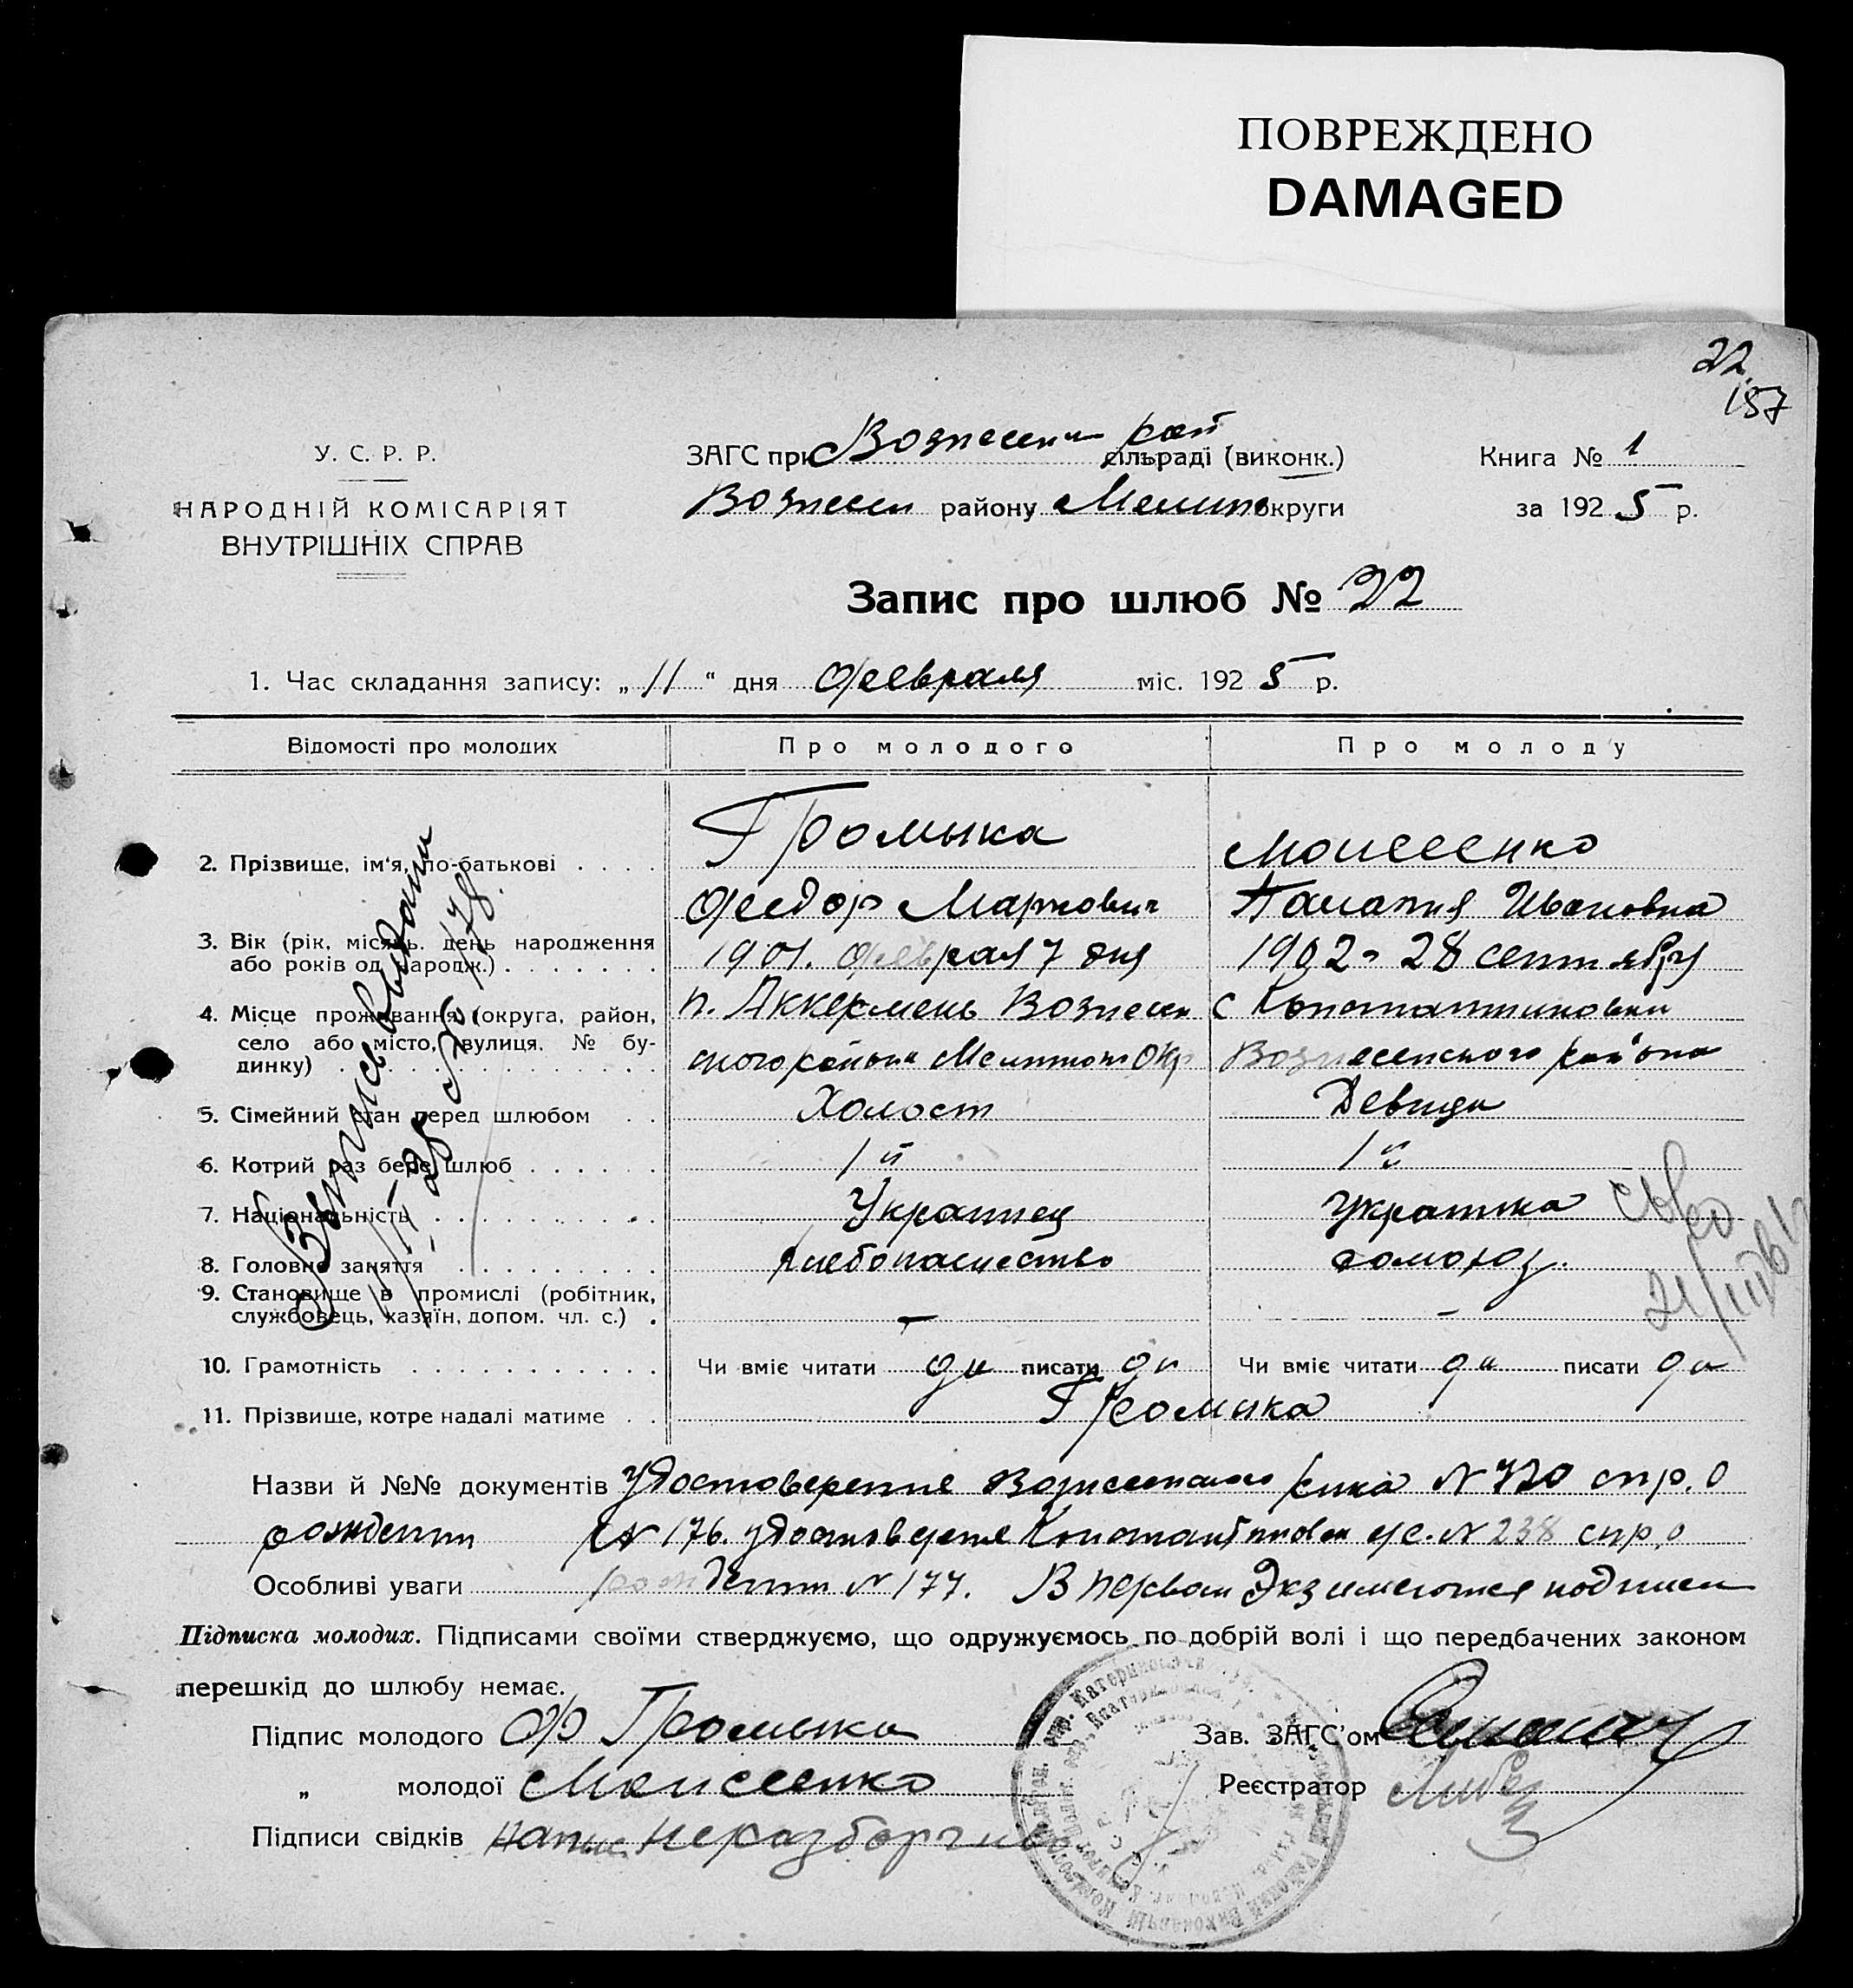 ПОВРЕЖДЕНО
DAMAGED
22
157
У. С. Р. Р.
НАРОДНІЙ КОМІСАРІЯТ
ВНУТРІШНІХ СПРАВ
ЗАГС при Вознесен рай сільраді (виконк.)
Вознесен району Мелит округи
Книга № 1
за 1925 р.
Запис про шлюб № 22
1. Час складання запису: „11“ дня февраля міс. 1925 р.
Відомості про молодих Про молодого Про молоду
2. Прізвище, ім'я, по-батькові Громыка Моисеенко
Феодор Маркович Ивановна
3. Вік (рік, місяць, день народження
або років од народж.) 1901. февраля 7 дня 1902 28 сентября
4. Місце проживання (округа, район,
село або місто, вулиця, № бу-
динку)
п. Аккермень Вознесен с Константиновки
ского района Мелитоп Окр Вознесенского района
5. Сімейний стан перед шлюбом Холост Девица
6. Котрий раз бере шлюб 1й 1й
7. Національність Украинец Украинка
8. Головне заняття хлебопашество домохоз.
9. Становище в промислі (робітник,
службовець, хазяїн, допом. чл. с.) — —
10. Грамотність Чи вміє читати да писати да Чи вміє читати да писати да
11. Прізвище, котре надалі матиме Громыка
Запись
178
21/III
Назви й №№ документів Удостоверение Вознесенского рика N 720 спр. о
рождении N 176. удостоверение Константиновск с/с. N 238 спр. о
Особливі уваги рождении N 177. В первом экз имеются подписи
Підписка молодих. Підписами своїми стверджуємо, що одружуємось по добрій волі і що передбачених законом
перешкід до шлюбу немає.
Підпис молодого Ф Громыка
Зав. ЗАГС'ом
„ молодої Моисеенко
Реєстратор
Підписи свідків неразборчиво